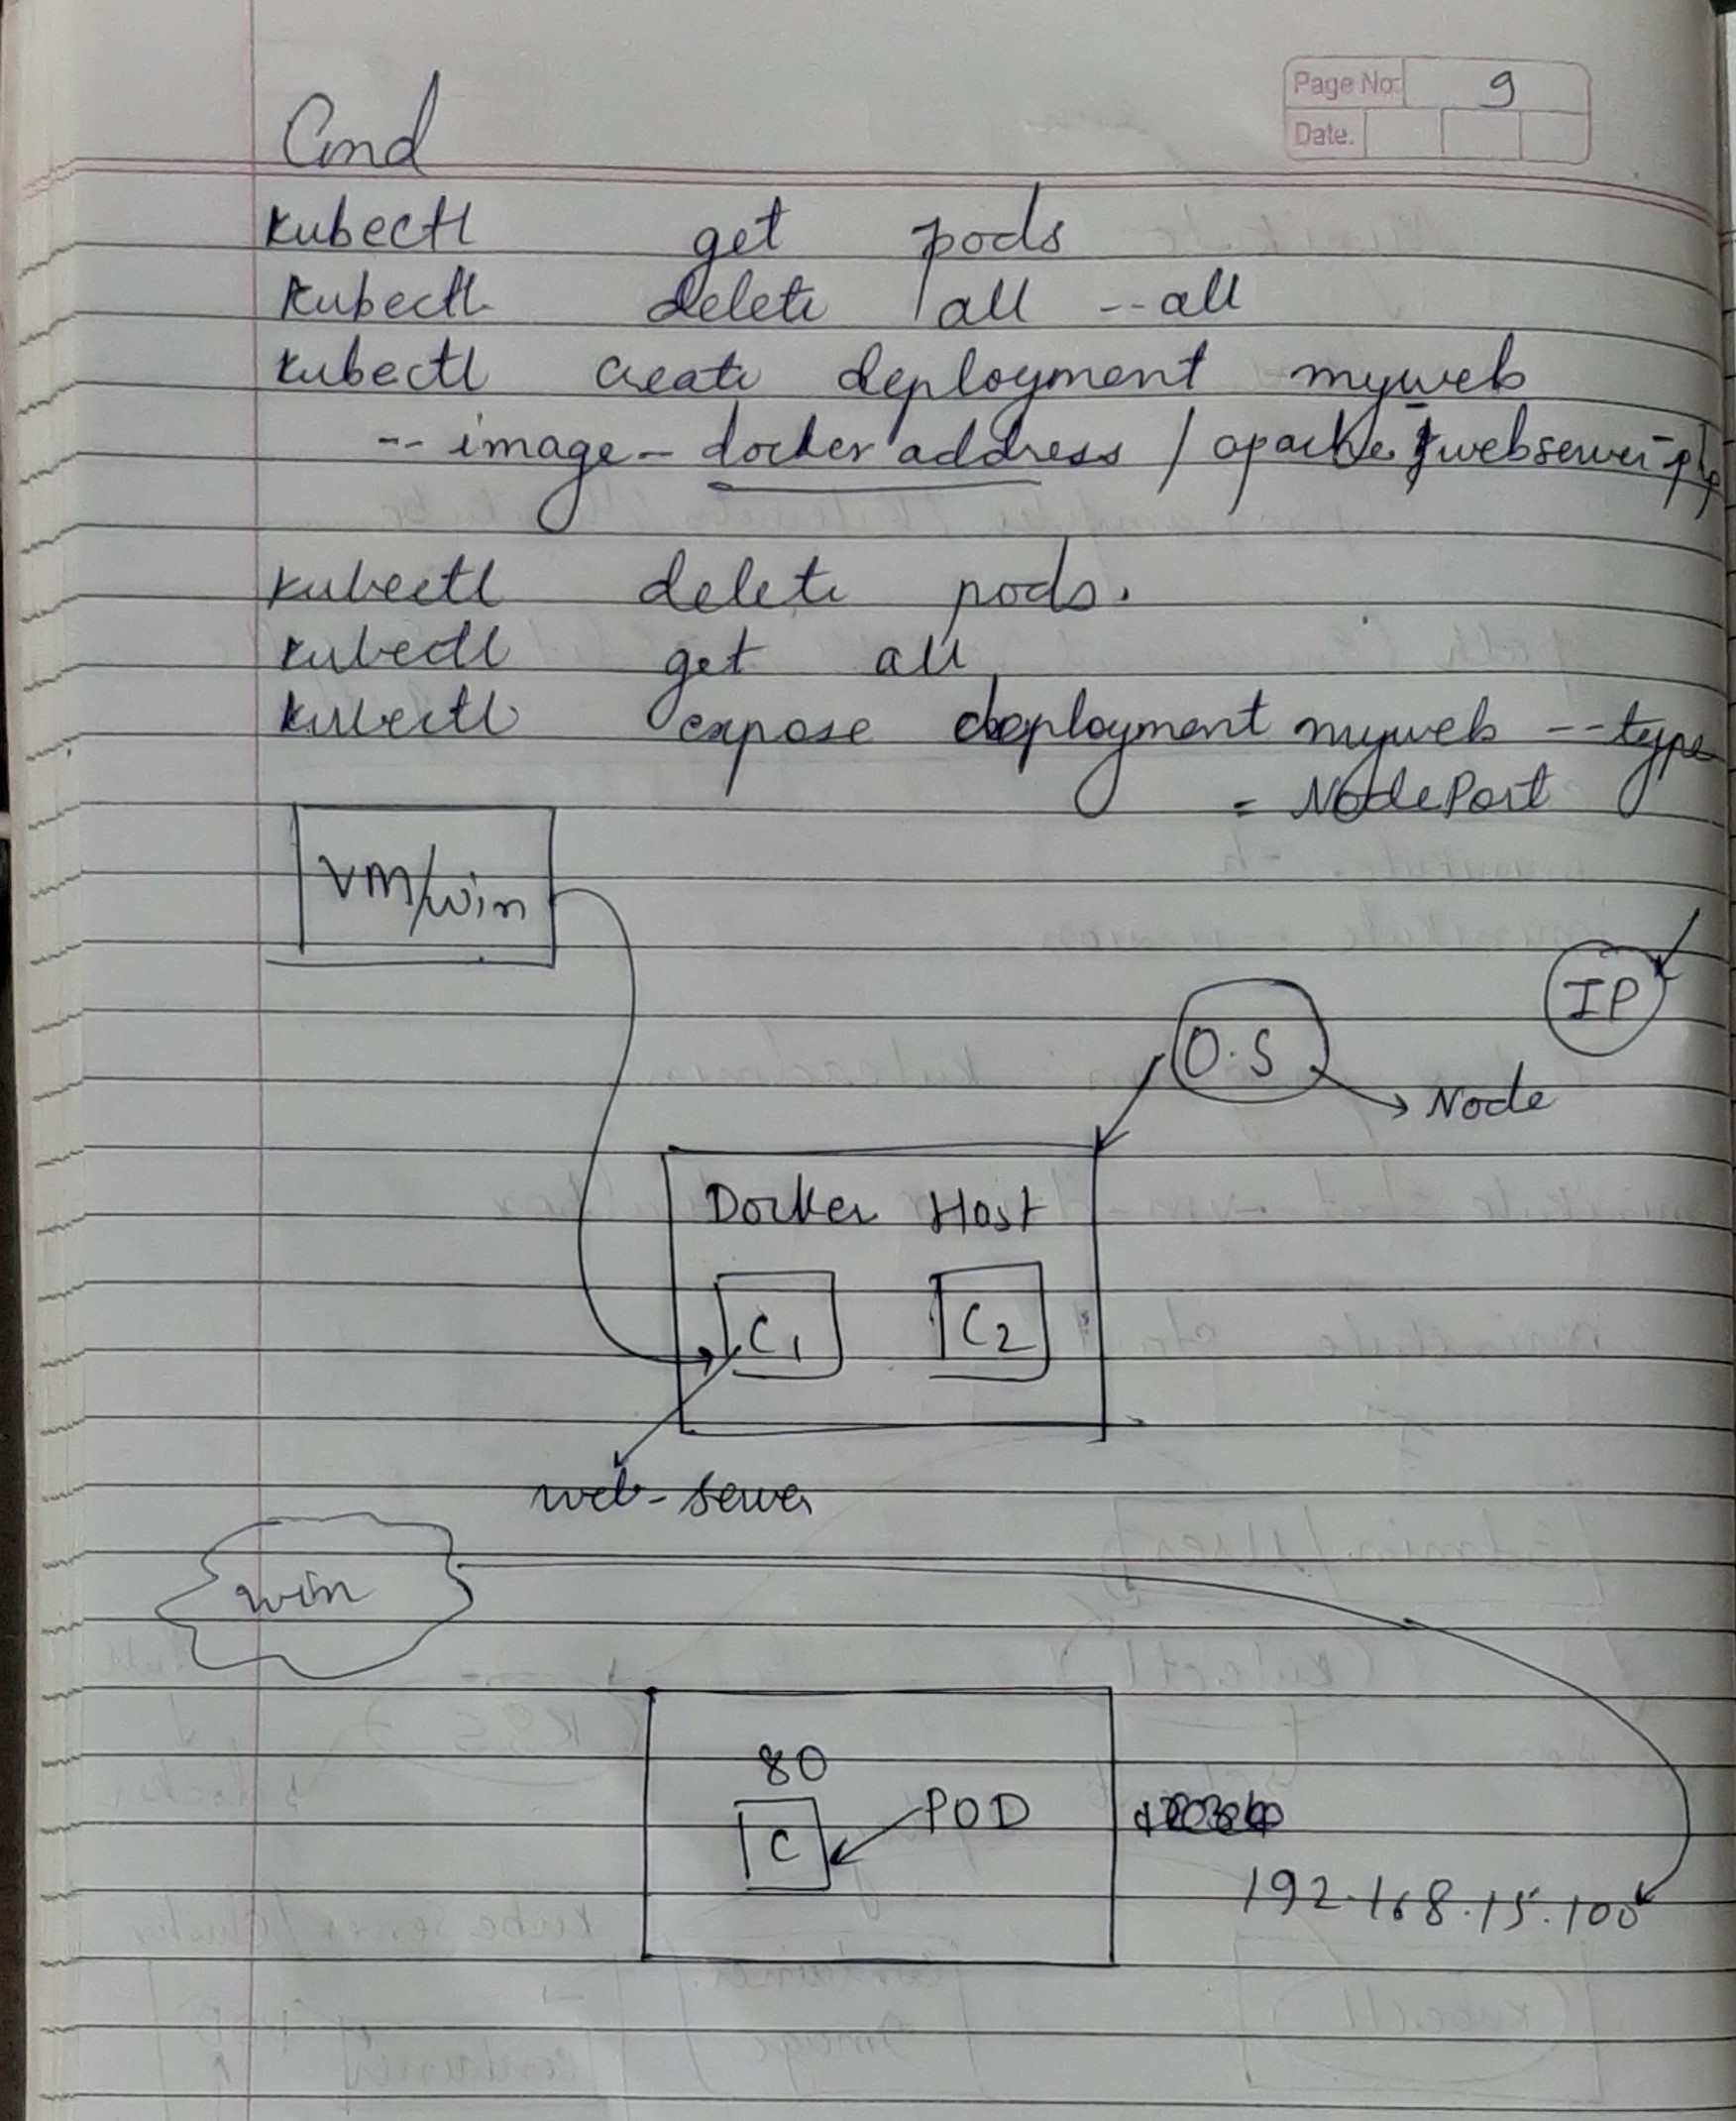 Page No: 9
Date.
Cmd
kubectl get pods
kubectl delete all --all
kubectl create deployment myweb
-- image - docker address / apache-webserver-php
kubectl delete pods.
kubectl get all
kubectl expose deployment myweb --type
= NodePort
VM/win
IP
O.S
Node
Docker Host
C1 C2
web-server
win
80
POD
C
192.168.15.100